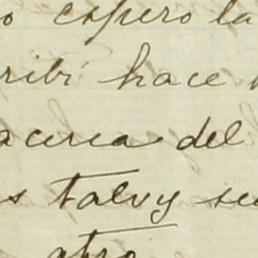 o espero la
ribí hace
acerca del
s talvy se
otro